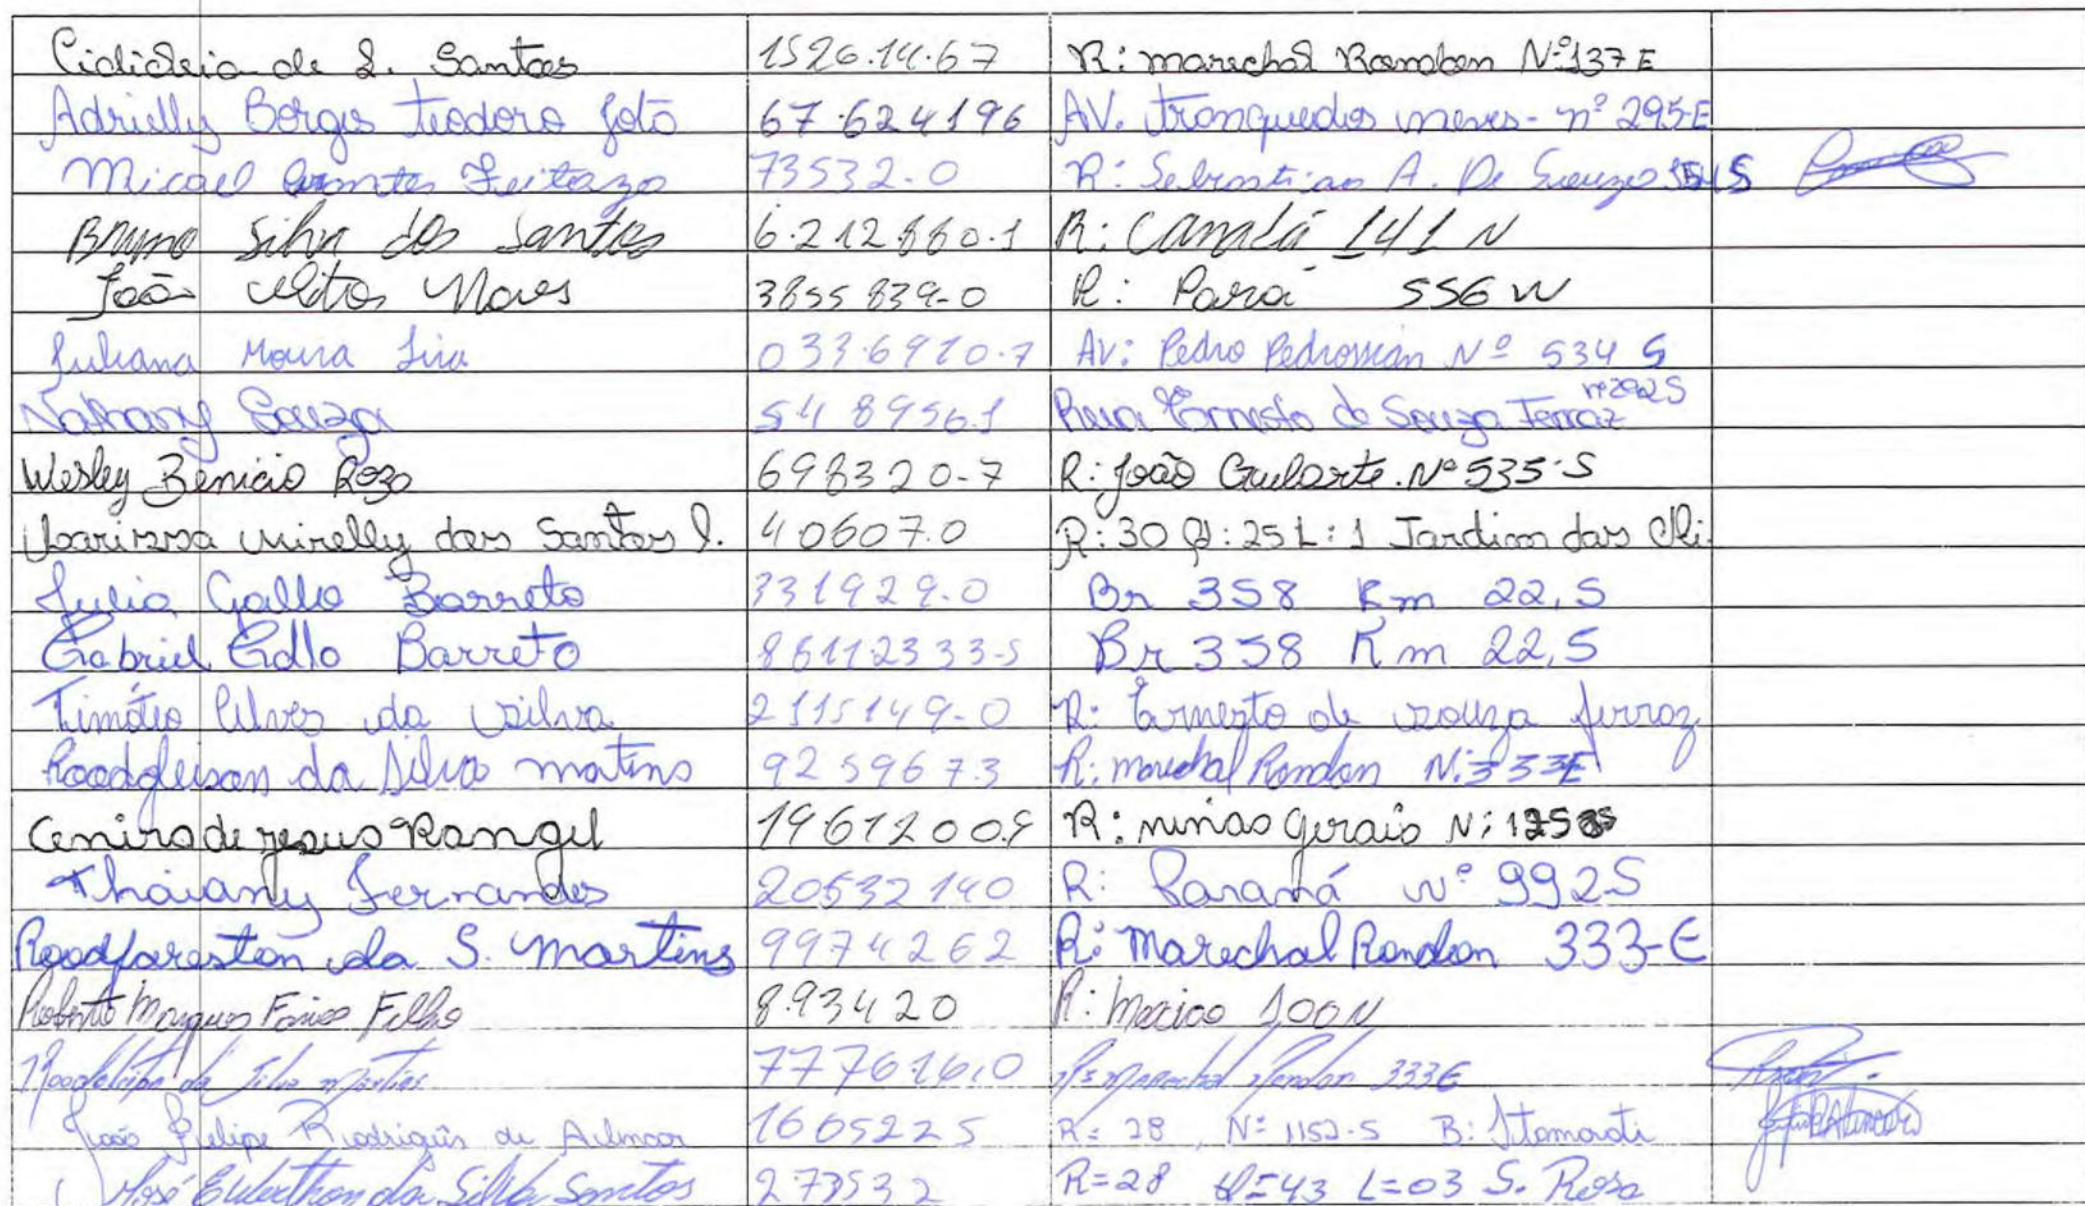 Cidicleia de L. Santos 1526.14.67 R: marechal Rondon Nº137E
Adrielly Borges Teodoro 67.624196 AV. Tranquedos neves - nº 295-E
Micael Feitoza 73532-0 R: Sebastiao A. De S
Bruno Silva dos Santos 6.212.860.1 R: Canadá 141 N
João Neves 3855839-0 R: Pará 556 W
Juliana Moura Lira 033.6910.7 AV: Pedro Pedrossian Nº 534 S
Nathany Souza 5489956.1 Rua Ernesto de Souza Ferraz nº292S
Wesley Benicio Rozo 698320-7 R: João Gularte. Nº 535-S
Larissa mirelly dos Santos 40607.0 R: 30 Q: 25 L: 1 Jardim das Oli.
Julia Gallo Barreto 331929.0 Br 358 Km 22,5
Gabriel Gallo Barreto 86112333-5 Br 358 Km 22,5
Timóteo Alves da Silva 2115149-0 R: Ernesto de souza ferraz
Roodgleison da Silva matins 9259673 R: marechal Rondon N: 333E
Cenira de jesus Rangel 1961200.9 R: minas gerais N: 125
Thaiany Fernandes 20532140 R: Paraná nº 992S
Roodfareston da S. Martins 9974262 R: Marechal Rondon 333-E
Roberto Marques Filho 8.93420 R: Mexico 100N
da Silva Martins 777616,0 R: Marechal Rondon 333E
João Felipe Rodrigues de 1605225 R= 28, Nº 1152-S B: Itamarati
José da Silva Santos 273532 R=28 Q=43 L=03 S. Rosa